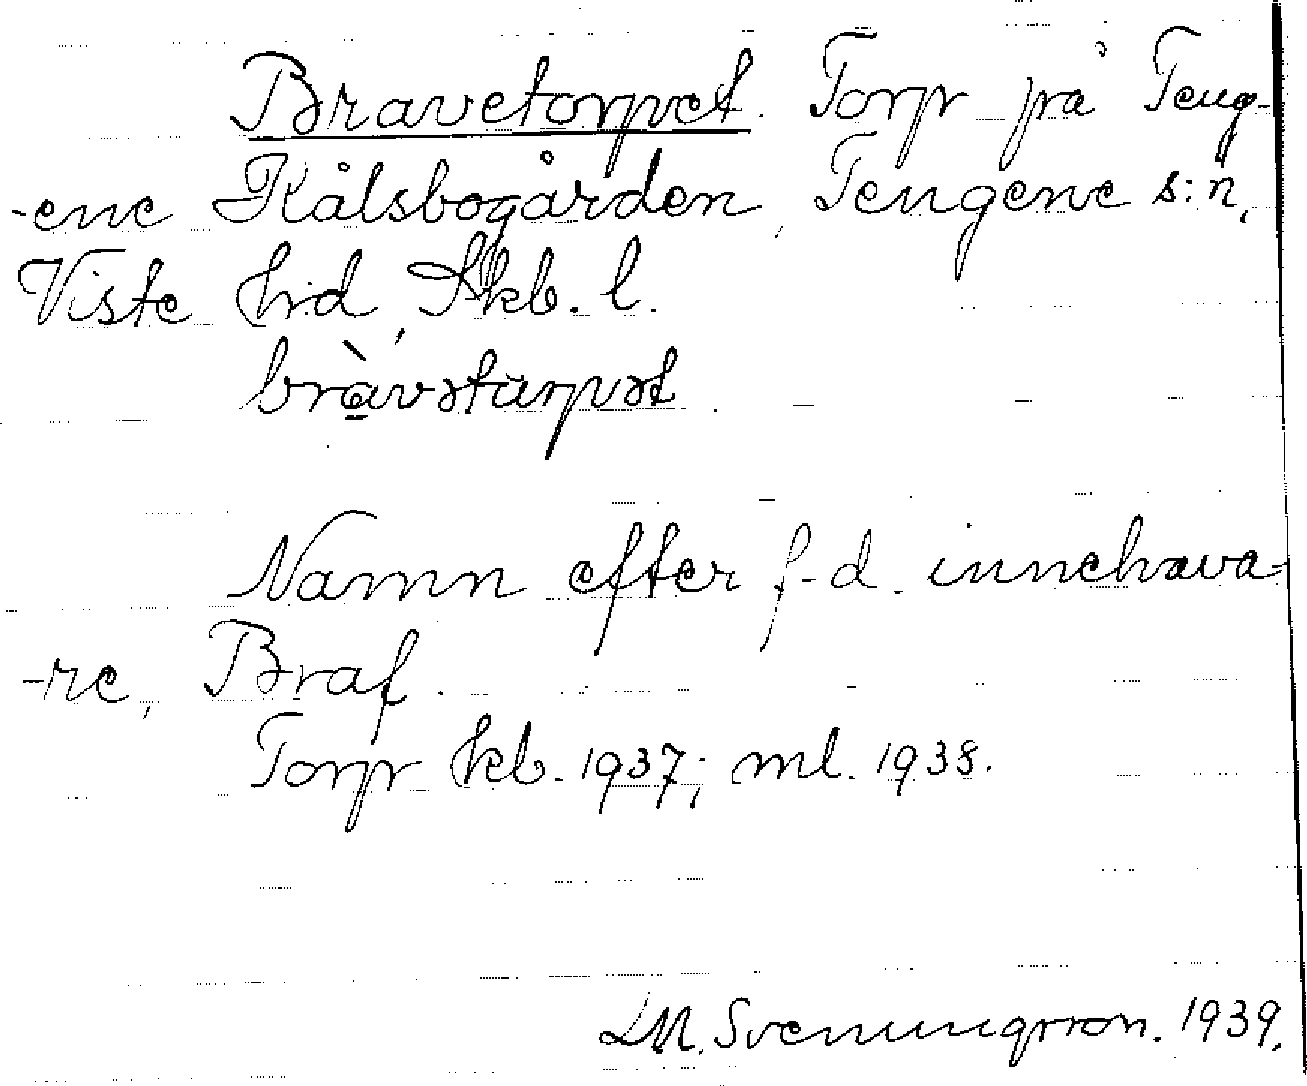 Bravetorpet. Torp på Teng-
-ene Kålsbogården, Tengene s:n,
Viste hd, Skb. l.
bràvətarpət
Namn efter f.d. innehava-
-re, Braf.
Torp kb. 1937; ml. 1938.
Svenungsson. 1939.